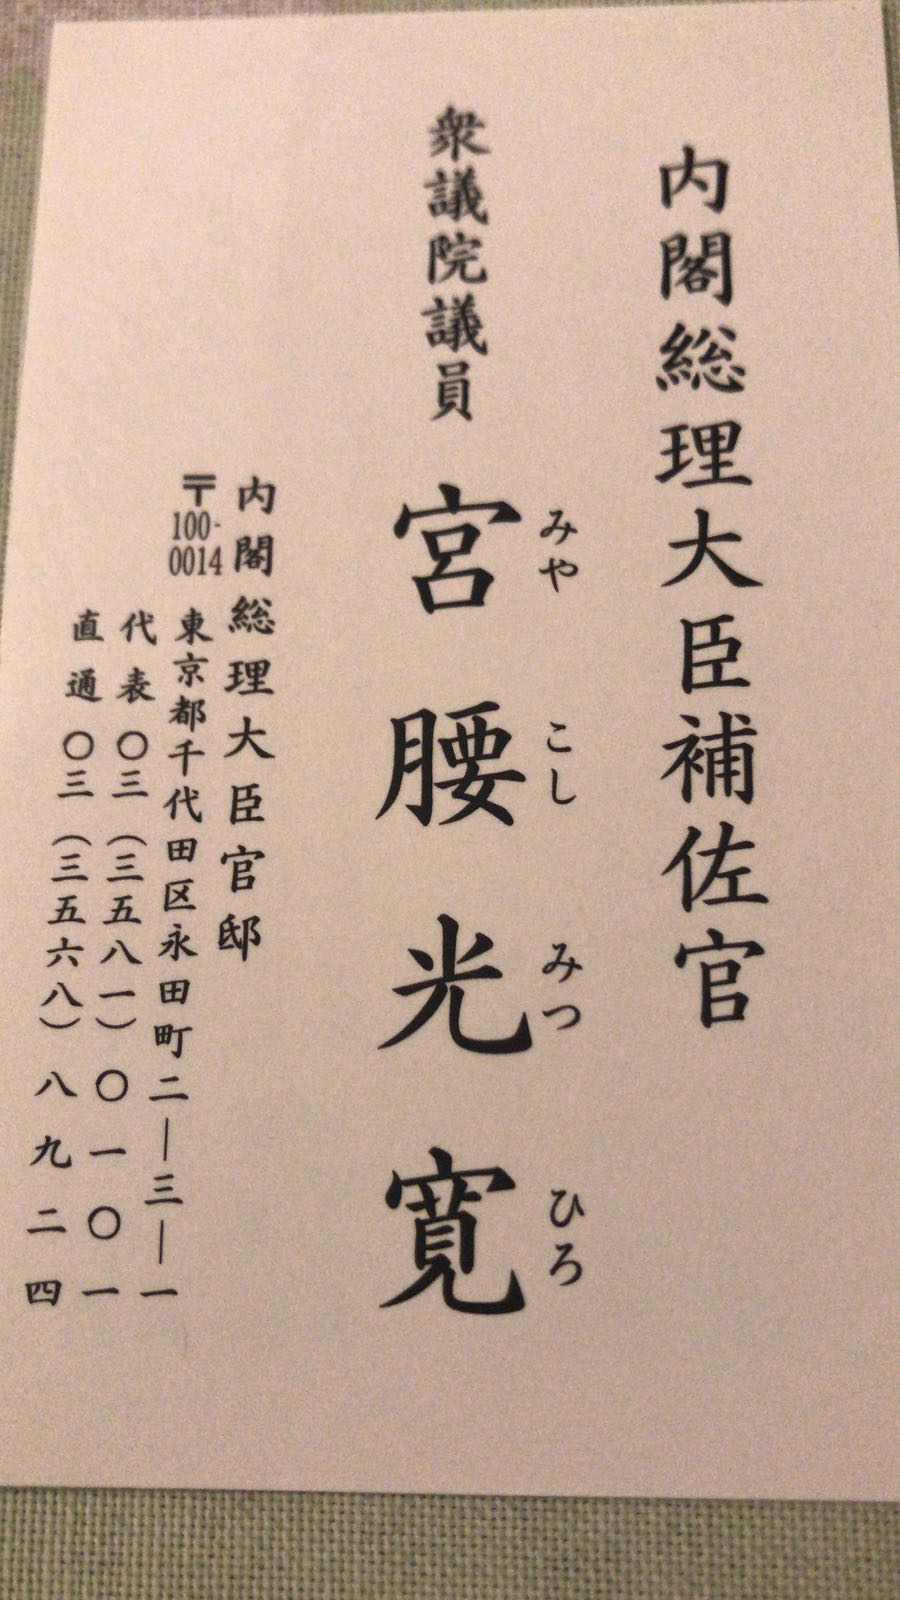 内閣総理大臣補佐官
衆議院議員
宮腰光寛
みやこしみつひろ
内閣総理大臣官邸
〒100-0014
東京都千代田区永田町二―三―一
代表〇三（三五八一）〇一〇一
直通〇三（三五六八）八九二四